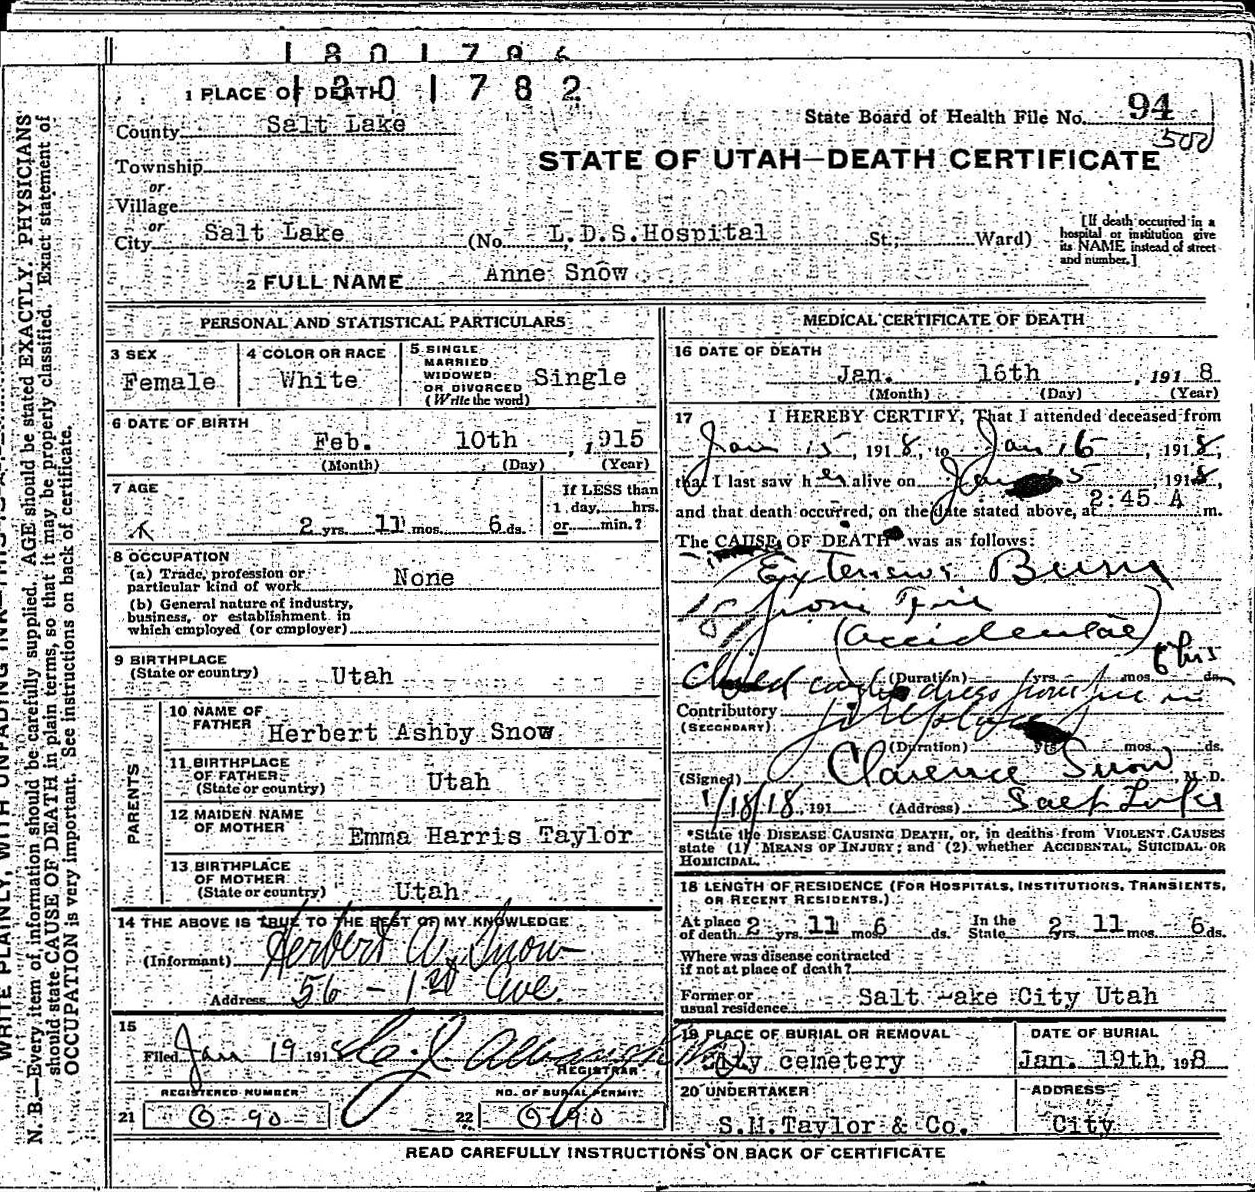 1801796
1801782
1 PLACE OF DEATH
County Salt Lake
State Board of Health File No. 94
500
Township
STATE OF UTAH—DEATH CERTIFICATE
or
Village
or
City Salt Lake (No. L.D.S.Hospital St.; Ward)
[If death occurred in a hospital or institution give its NAME instead of street and number.]
2 FULL NAME Anne Snow
PERSONAL AND STATISTICAL PARTICULARS
3 SEX
Female
4 COLOR OR RACE
White
5 SINGLE
MARRIED
WIDOWED
OR DIVORCED
(Write the word)
Single
6 DATE OF BIRTH
Feb. 10th, 1915
(Month) (Day) (Year)
7 AGE
2 yrs. 11 mos. 6 ds.
If LESS than
1 day, hrs.
or min.?
8 OCCUPATION
(a) Trade, profession or
particular kind of work None
(b) General nature of industry,
business, or establishment in
which employed (or employer)
9 BIRTHPLACE
(State or country) Utah
PARENTS
10 NAME OF
FATHER Herbert Ashby Snow
11 BIRTHPLACE
OF FATHER
(State or country) Utah
12 MAIDEN NAME
OF MOTHER Emma Harris Taylor
13 BIRTHPLACE
OF MOTHER
(State or country) Utah
14 THE ABOVE IS TRUE TO THE BEST OF MY KNOWLEDGE
(Informant) Herbert A. Snow
Address 56 - 1st Ave.
15
Filed Jan 19 191
REGISTRAR
REGISTERED NUMBER
21 O-90
NO. OF BURIAL PERMIT
22 O-90
MEDICAL CERTIFICATE OF DEATH
16 DATE OF DEATH
Jan. 16th, 1918
(Month) (Day) (Year)
17 I HEREBY CERTIFY, That I attended deceased from
Jan 15, 1918, to Jan 16, 1918,
that I last saw her alive on Jan 15, 1918,
and that death occurred, on the date stated above, at 2:45 A m.
The CAUSE OF DEATH was as follows:
Extensive Burn
from Fire
(accidental)
6 hrs
(Duration) yrs. mos. ds.
Child caught dress from fire in
Contributory fireplace
(SECONDARY)
(Duration) yrs. mos. ds.
(Signed) Clarence Snow M. D.
1/18/18, 191 (Address) Salt Lake
*State the DISEASE CAUSING DEATH, or, in deaths from VIOLENT CAUSES
state (1) MEANS OF INJURY; and (2) whether ACCIDENTAL, SUICIDAL OR
HOMICIDAL.
18 LENGTH OF RESIDENCE (FOR HOSPITALS, INSTITUTIONS, TRANSIENTS,
OR RECENT RESIDENTS.)
At place
of death 2 yrs. 11 mos. 6 ds. In the
State 2 yrs. 11 mos. 6 ds.
Where was disease contracted
if not at place of death?
Former or
usual residence Salt -ake City Utah
19 PLACE OF BURIAL OR REMOVAL
City cemetery
DATE OF BURIAL
Jan. 19th, 1918
20 UNDERTAKER
S.M.Taylor & Co.
ADDRESS
City
READ CAREFULLY INSTRUCTIONS ON BACK OF CERTIFICATE
WRITE PLAINLY, WITH UNFADING INK—THIS IS A
N. B.—Every item of information should be carefully supplied. AGE should be stated EXACTLY. PHYSICIANS
should state CAUSE OF DEATH in plain terms, so that it may be properly classified. Exact statement of
OCCUPATION is very important. See instructions on back of certificate.